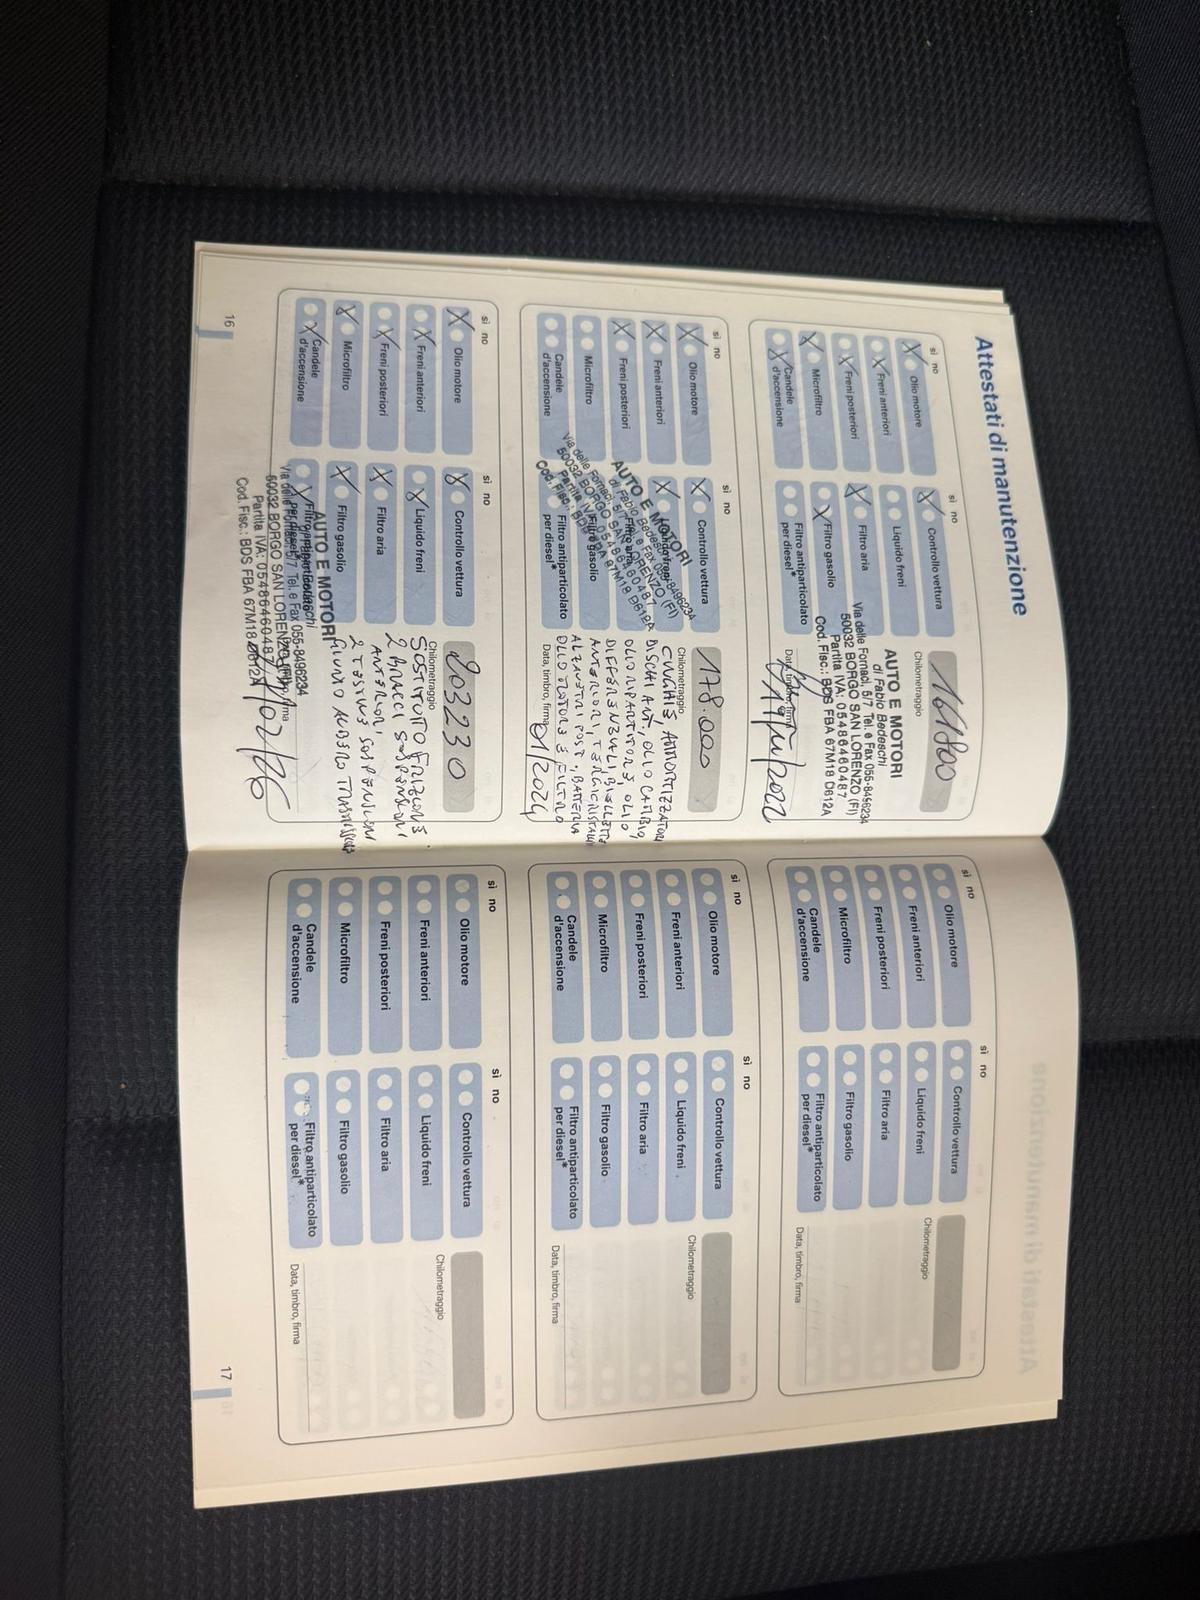 Attestati di manutenzione
sì no
Olio motore
Freni anteriori
Freni posteriori
Microfiltro
Candele
d'accensione
sì no
Controllo vettura
Liquido freni
Filtro aria
Filtro gasolio
Filtro antiparticolato
per diesel*
Chilometraggio
AUTO E MOTORI
di Fabio Bedeschi
Via delle Fornaci, 5/7 Tel. e Fax 055-8496234
50032 BORGO SAN LORENZO (FI)
Partita IVA: 05486460487
Cod. Fisc.: BDS FBA 67M18 D612A
Data, timbro, firma
sì no
Olio motore
Freni anteriori
Freni posteriori
Microfiltro
Candele
d'accensione
sì no
Controllo vettura
Liquido freni
Filtro aria
Filtro gasolio
Filtro antiparticolato
per diesel*
178.000
Chilometraggio
AUTO E MOTORI
di Fabio Bedeschi
Via delle Fornaci, 5/7 Tel. e Fax 055-8496234
50032 BORGO SAN LORENZO (FI)
Partita IVA: 05486460487
Cod. Fisc.: BDS FBA 67M18 D612A
CINGHIE, AMMORTIZZATORI
DISCHI ANT., OLIO CAMBIO,
OLIO RIPARTITORE, OLIO
DIFFERENZIALI, BIELLETTE
ANTERIORI, TERGICRISTALLI
ALZAVETRI POST., BATTERIA
OLIO MOTORE E FILTRO
Data, timbro, firma
01/2024
sì no
Olio motore
Freni anteriori
Freni posteriori
Microfiltro
Candele
d'accensione
sì no
Controllo vettura
Liquido freni
Filtro aria
Filtro gasolio
Filtro antiparticolato
per diesel*
203230
Chilometraggio
SOSTITUITO FRIZIONE.
2 BRACCI SOSPENSIONI
ANTERIORI
2 TESTINE SOSPENSIONI
GIUNTO ALBERO TRASMISSIONE
AUTO E MOTORI
di Fabio Bedeschi
Via delle Fornaci, 5/7 Tel. e Fax 055-8496234
50032 BORGO SAN LORENZO (FI)
Partita IVA: 05486460487
Cod. Fisc.: BDS FBA 67M18 D612A
firma
16
sì no
Olio motore
Freni anteriori
Freni posteriori
Microfiltro
Candele
d'accensione
sì no
Controllo vettura
Liquido freni
Filtro aria
Filtro gasolio
Filtro antiparticolato
per diesel*
Chilometraggio
Data, timbro, firma
sì no
Olio motore
Freni anteriori
Freni posteriori
Microfiltro
Candele
d'accensione
sì no
Controllo vettura
Liquido freni
Filtro aria
Filtro gasolio
Filtro antiparticolato
per diesel*
Chilometraggio
Data, timbro, firma
sì no
Olio motore
Freni anteriori
Freni posteriori
Microfiltro
Candele
d'accensione
sì no
Controllo vettura
Liquido freni
Filtro aria
Filtro gasolio
Filtro antiparticolato
per diesel*
Chilometraggio
Data, timbro, firma
17